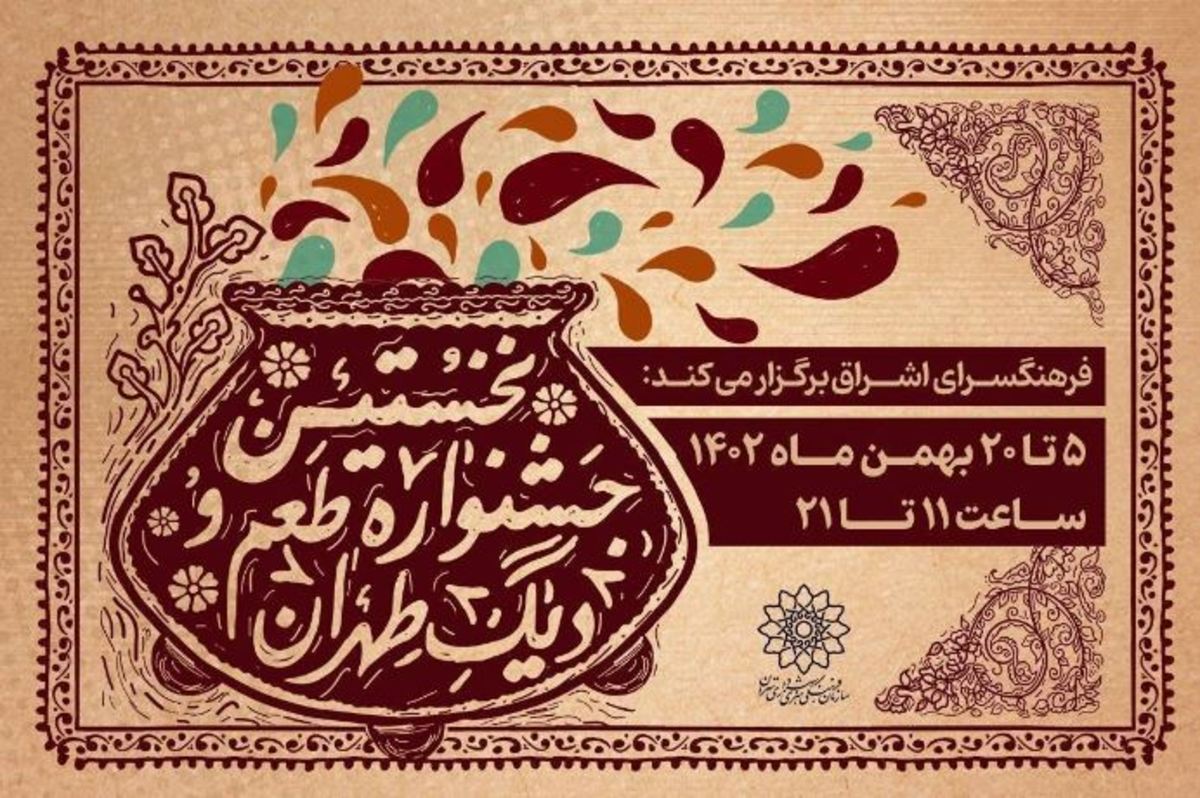 نخستین
جشنواره طعم و
دیگ طهران
فرهنگسرای اشراق برگزار می کند:
۵ تا ۲۰ بهمن ماه ۱۴۰۲
ساعت ۱۱ تا ۲۱
سازمان فرهنگی هنری شهرداری تهران